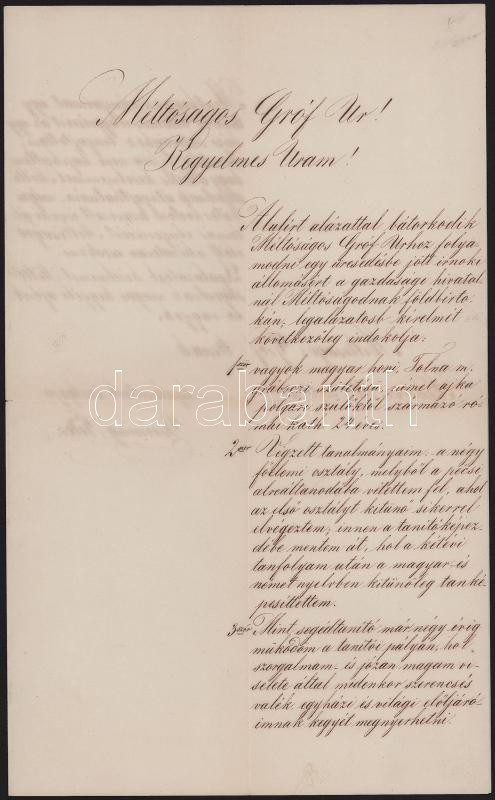 Méltóságos Gróf Ur!
Kegyelmes Uram!
Alulirt alázattal bátorkodik
Méltóságos Gróf Urhoz folya
modni egy üresedésbe jött irnoki
állomásért a gazdasági hivatal
nál Méltóságodnak földbirto-
kán, legalázatosb kérelmét
következőleg indokolja:
1ször vagyok magyar honi, Tolna m.
grábóczi születésű, német ajku
polgári szülőktől származó ró-
mai kath. 24 éves.
2szor Végzett tanulmányaim: a négy
főelemi osztály, melyből a pécsi
alreáltanodába vétettem fel, ahol
az első osztályt kitünő sikerrel
elvégeztem; innen a tanitóképez-
débe mentem át, hol a kétévi
tanfolyam után a magyar- és
német nyelvben kitünőleg tanké
pesittettem.
3szor Mint segédtanitó már négy évig
müködöm a tanitói pályán, hol
szorgalmam- és józan magam vi-
selete által midenkor szerencsés
valék egyházi és világi előljáró-
imnak kegyét megnyerhetni.
darabanth